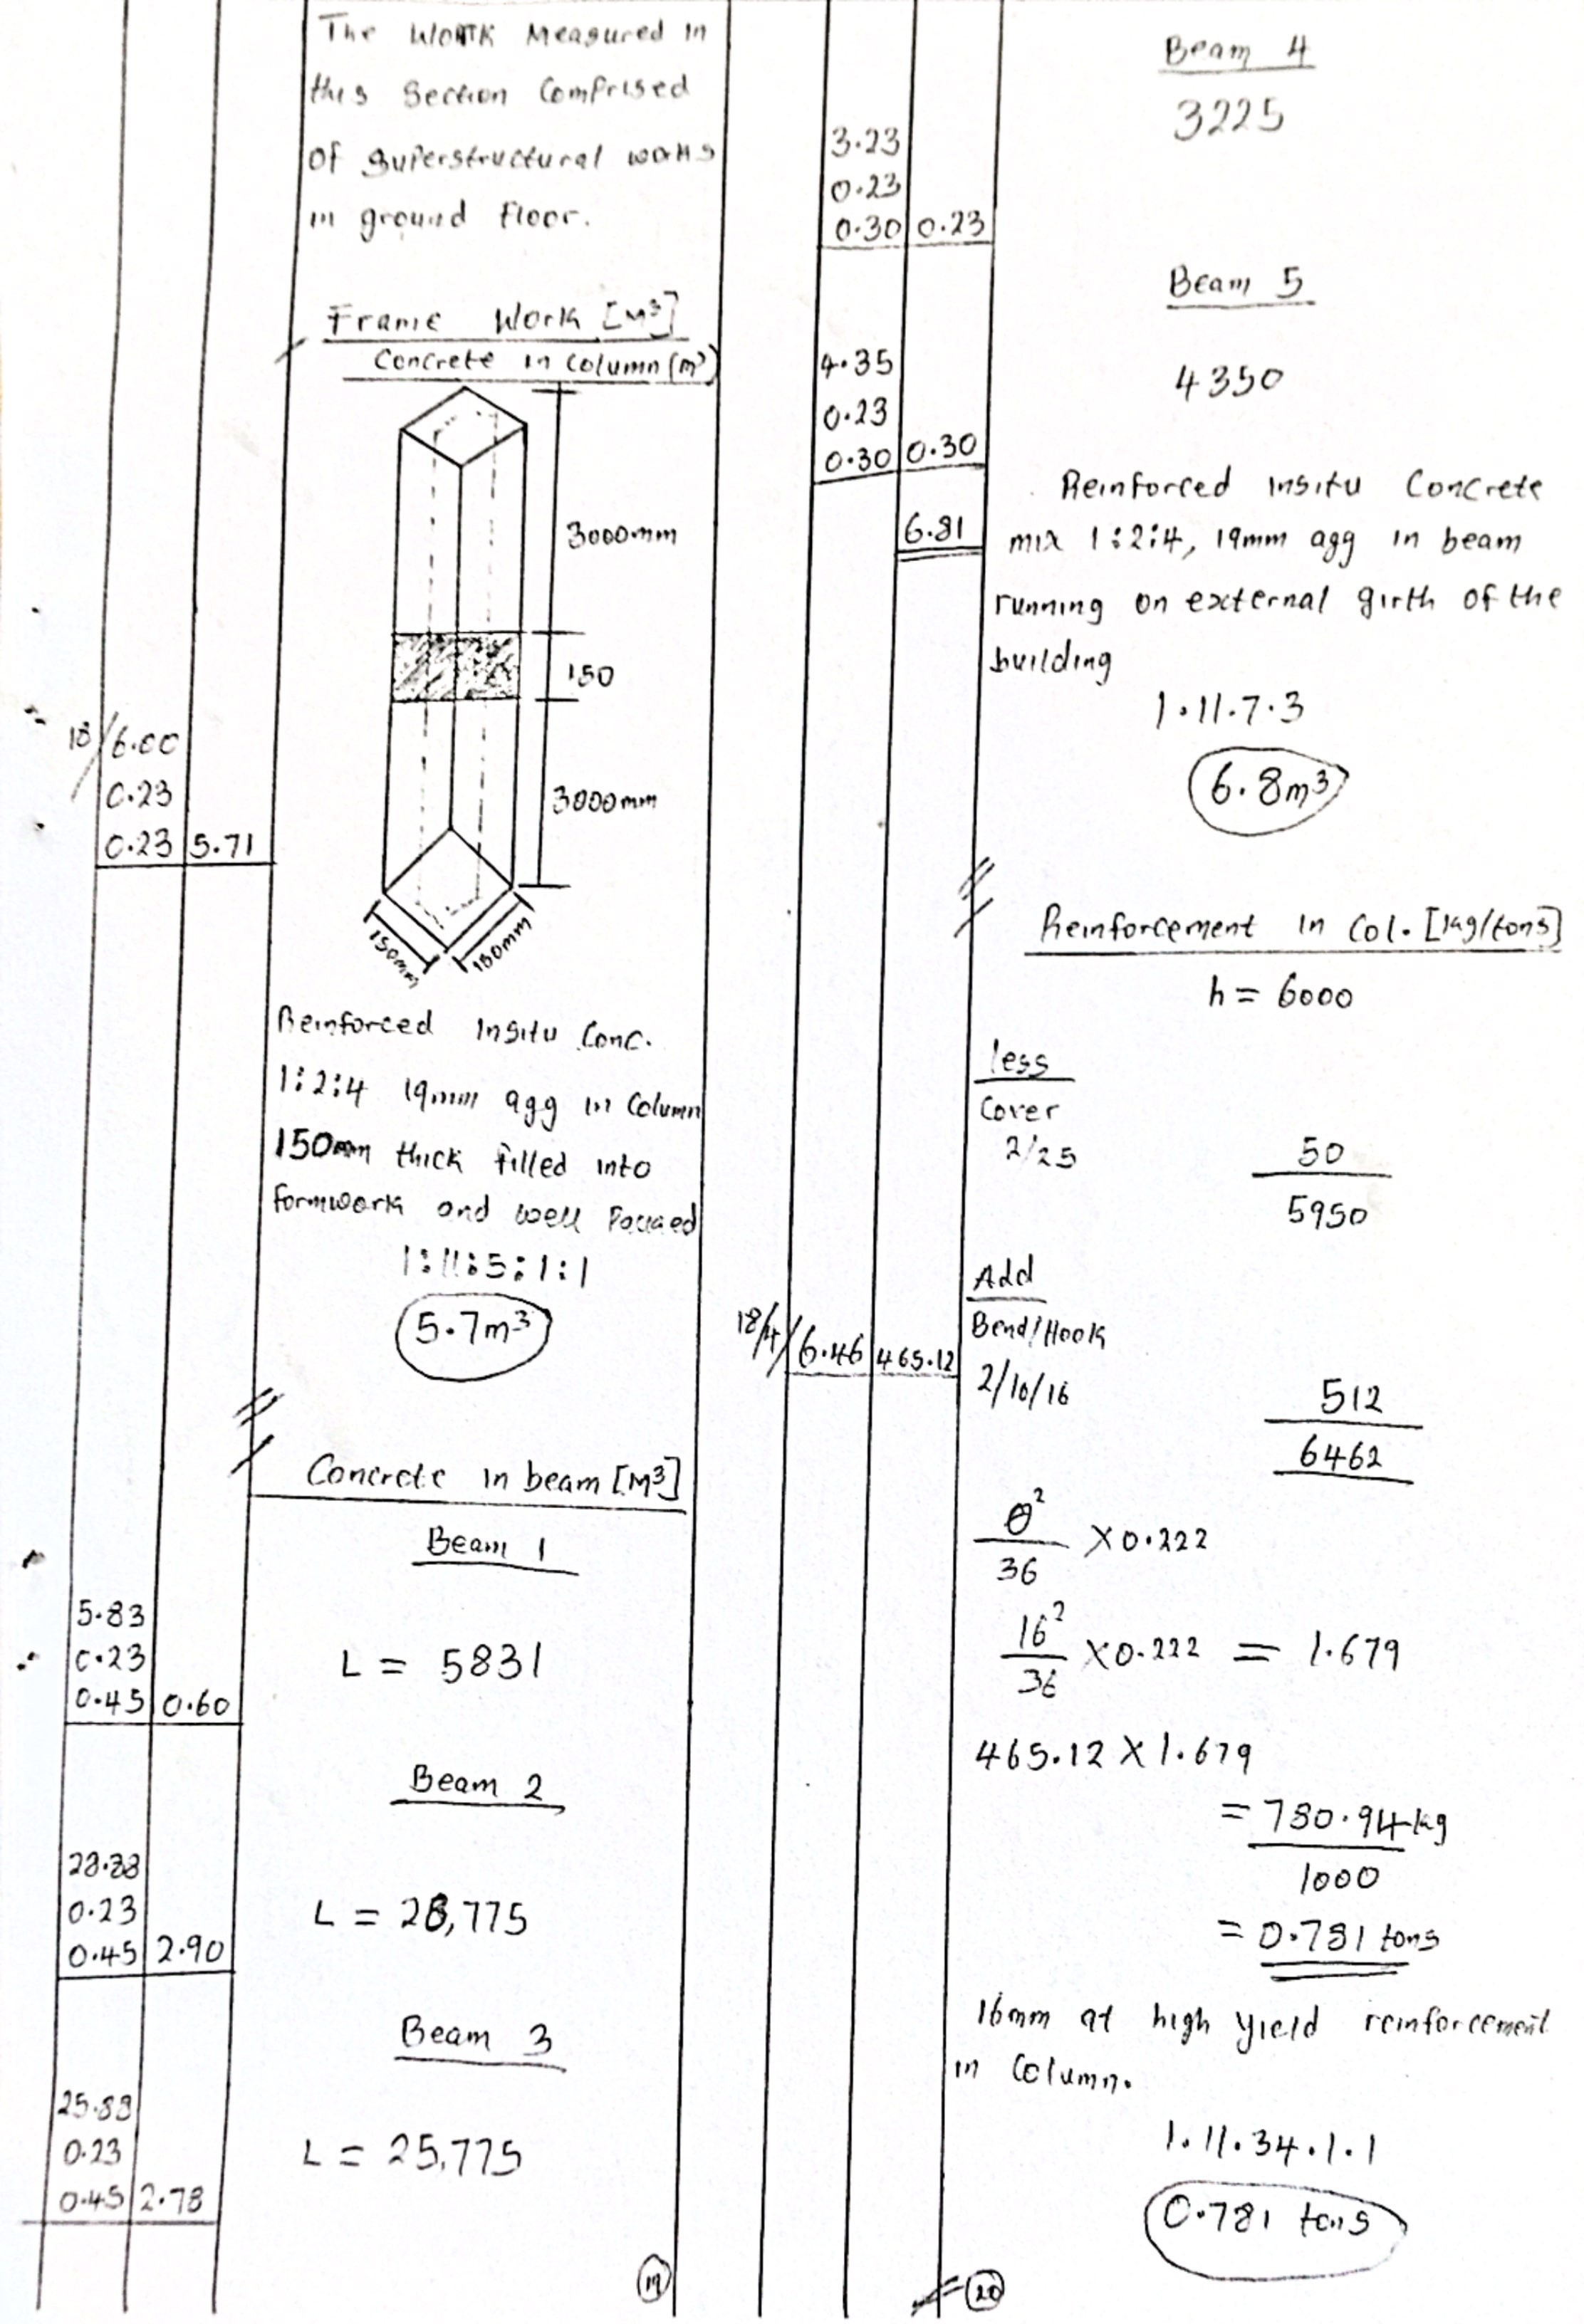 The Work Measured in
this Section Comprised
of Superstructural works
in ground floor.
Frame Work [M³]
Concrete in Column (m³)
3000mm
150
3000mm
150mm
150mm
18/6.00
0.23
0.23 5.71
Reinforced Insitu Conc.
1:2:4 19mm agg in Column
150mm thick filled into
formwork and well Packed
1:11:5:1:1
5.7m³
Concrete in beam [M³]
Beam 1
5.83
0.23
0.45 0.60
L = 5831
Beam 2
28.88
0.23
0.45 2.90
L = 28,775
Beam 3
25.88
0.23
0.45 2.78
L = 25,775
19
Beam 4
3225
3.23
0.23
0.30 0.23
Beam 5
4350
4.35
0.23
0.30 0.30
6.81
Reinforced Insitu Concrete
mix 1:2:4, 19mm agg in beam
running on external girth of the
building
1.11.7.3
6.8m³
Reinforcement in Col. [kg/tons]
h = 6000
less
Cover
2/25 50
5950
Add
Bend/Hook
18/4/6.46 465.12
2/10/16 512
6462
θ²
36 X0.222
16²
36 X0.222 = 1.679
465.12 X 1.679
= 780.94kg
1000
= 0.781 tons
16mm at high yield reinforcement
in Column.
1.11.34.1.1
0.781 tons
20